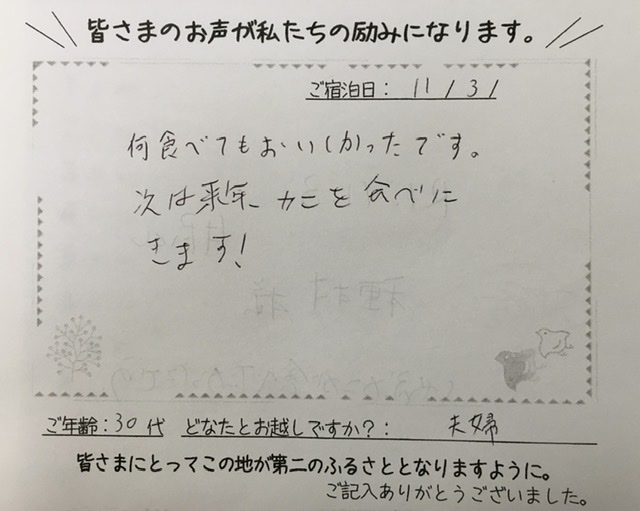 皆さまのお声が私たちの励みになります。
ご宿泊日: 11/31
何食べてもおいしかったです。
次は来年、カニを食べに
きます!
ご年齢:30代 どなたとお越しですか?: 夫婦
皆さまにとってこの地が第二のふるさととなりますように。
ご記入ありがとうございました。